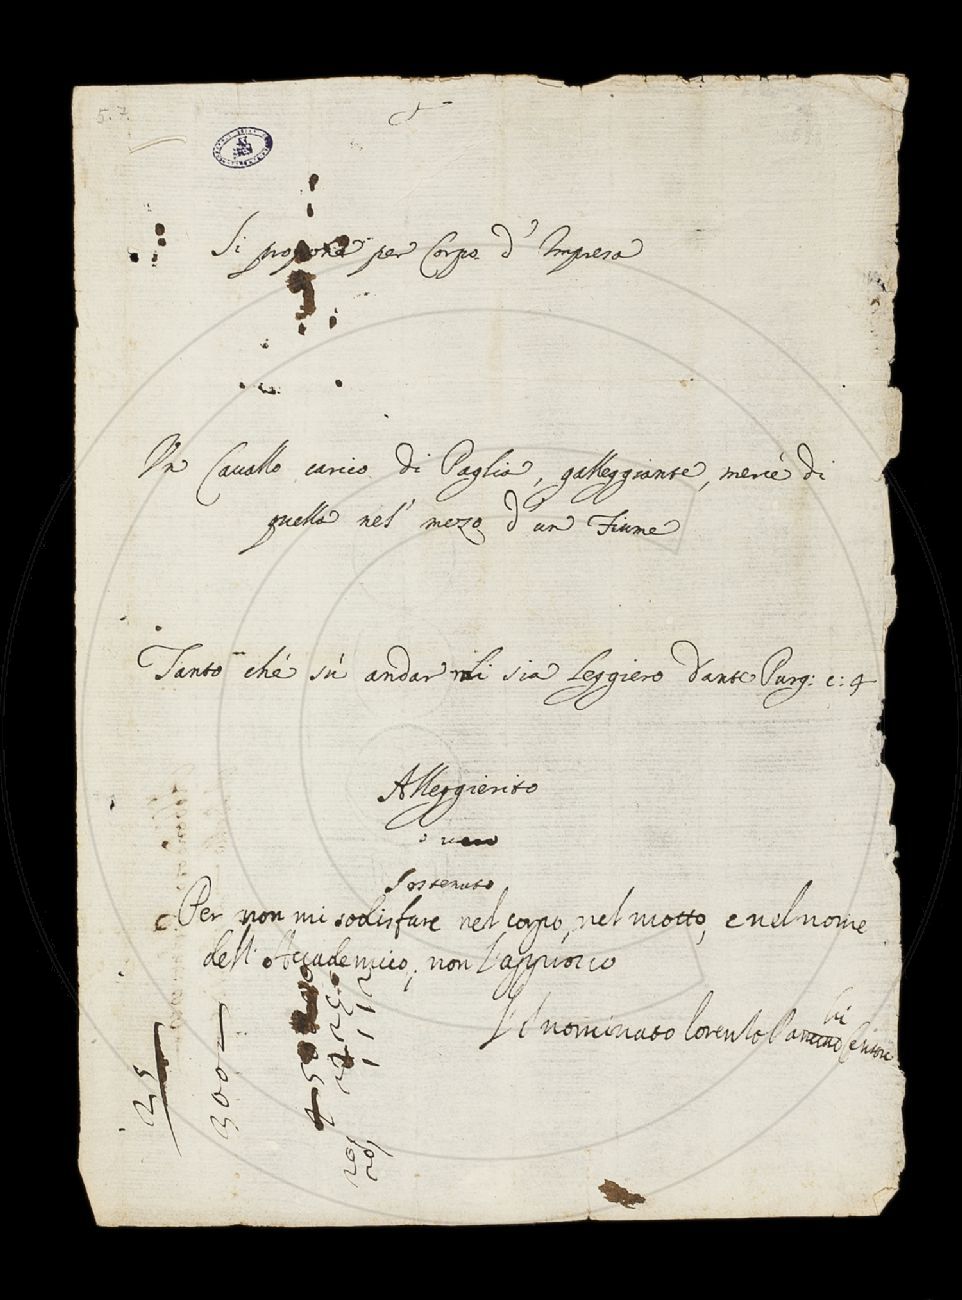 5. 7.
Si propone per Corpo d' Impresa
Un Cauallo carico di Paglia, galleggiante, mercè di
quella nel' mezo d'un Fiume
Tanto chè sù andar mi sia Leggiero Dante Purg: c: 4
Alleggierito
o uero
Sostenuto
Per non mi sodisfare nel corpo, nel motto, e nel nome
dell' Accademico, non l'approuo
L'Innominato Lorenzo Pan
25
300
20
20